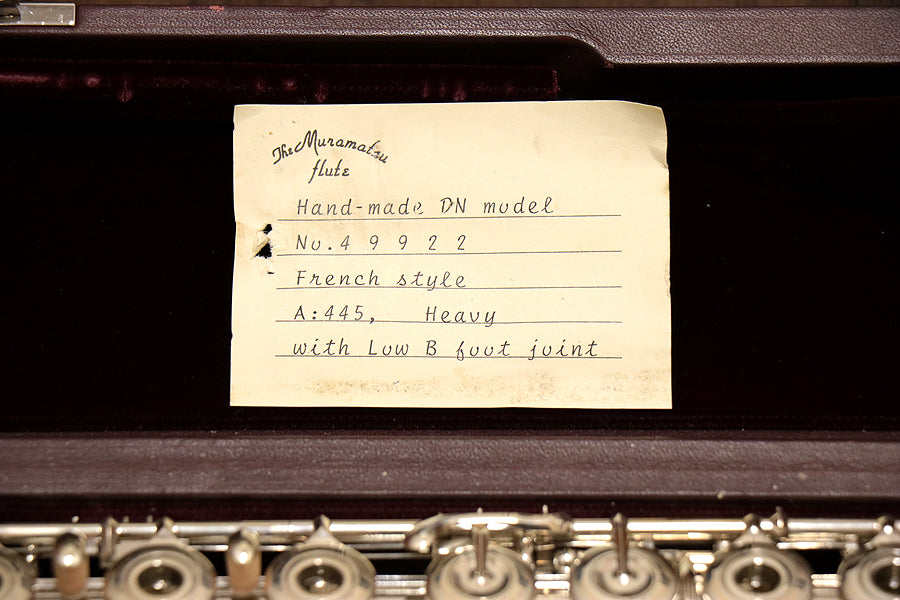 The Muramatsu
flute
Hand-made DN model
No. 49922
French style
A:445, Heavy
with Low B foot joint